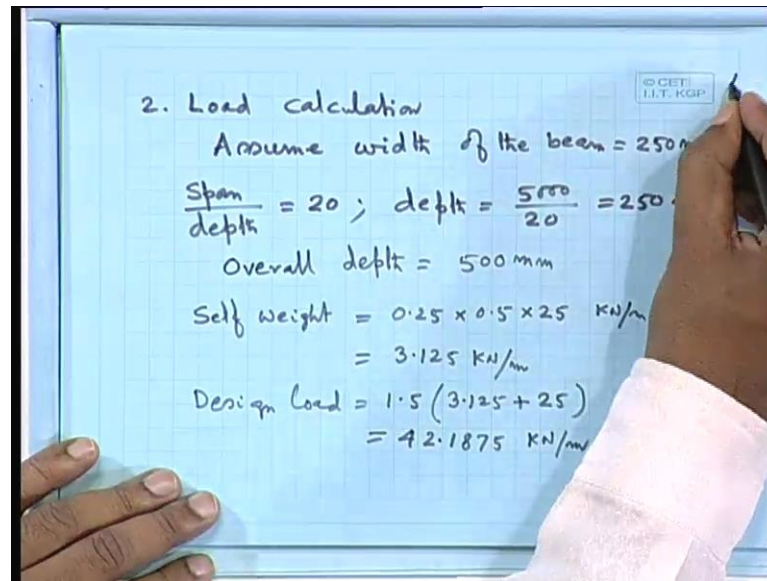 © CET
I.I.T. KGP
2. Load calculation
Assume width of the beam = 250
Span / depth = 20 ; depth = 5000 / 20 = 250
Overall depth = 500 mm
Self weight = 0.25 x 0.5 x 25 KN/m
= 3.125 KN/m
Design load = 1.5 (3.125 + 25)
= 42.1875 KN/m